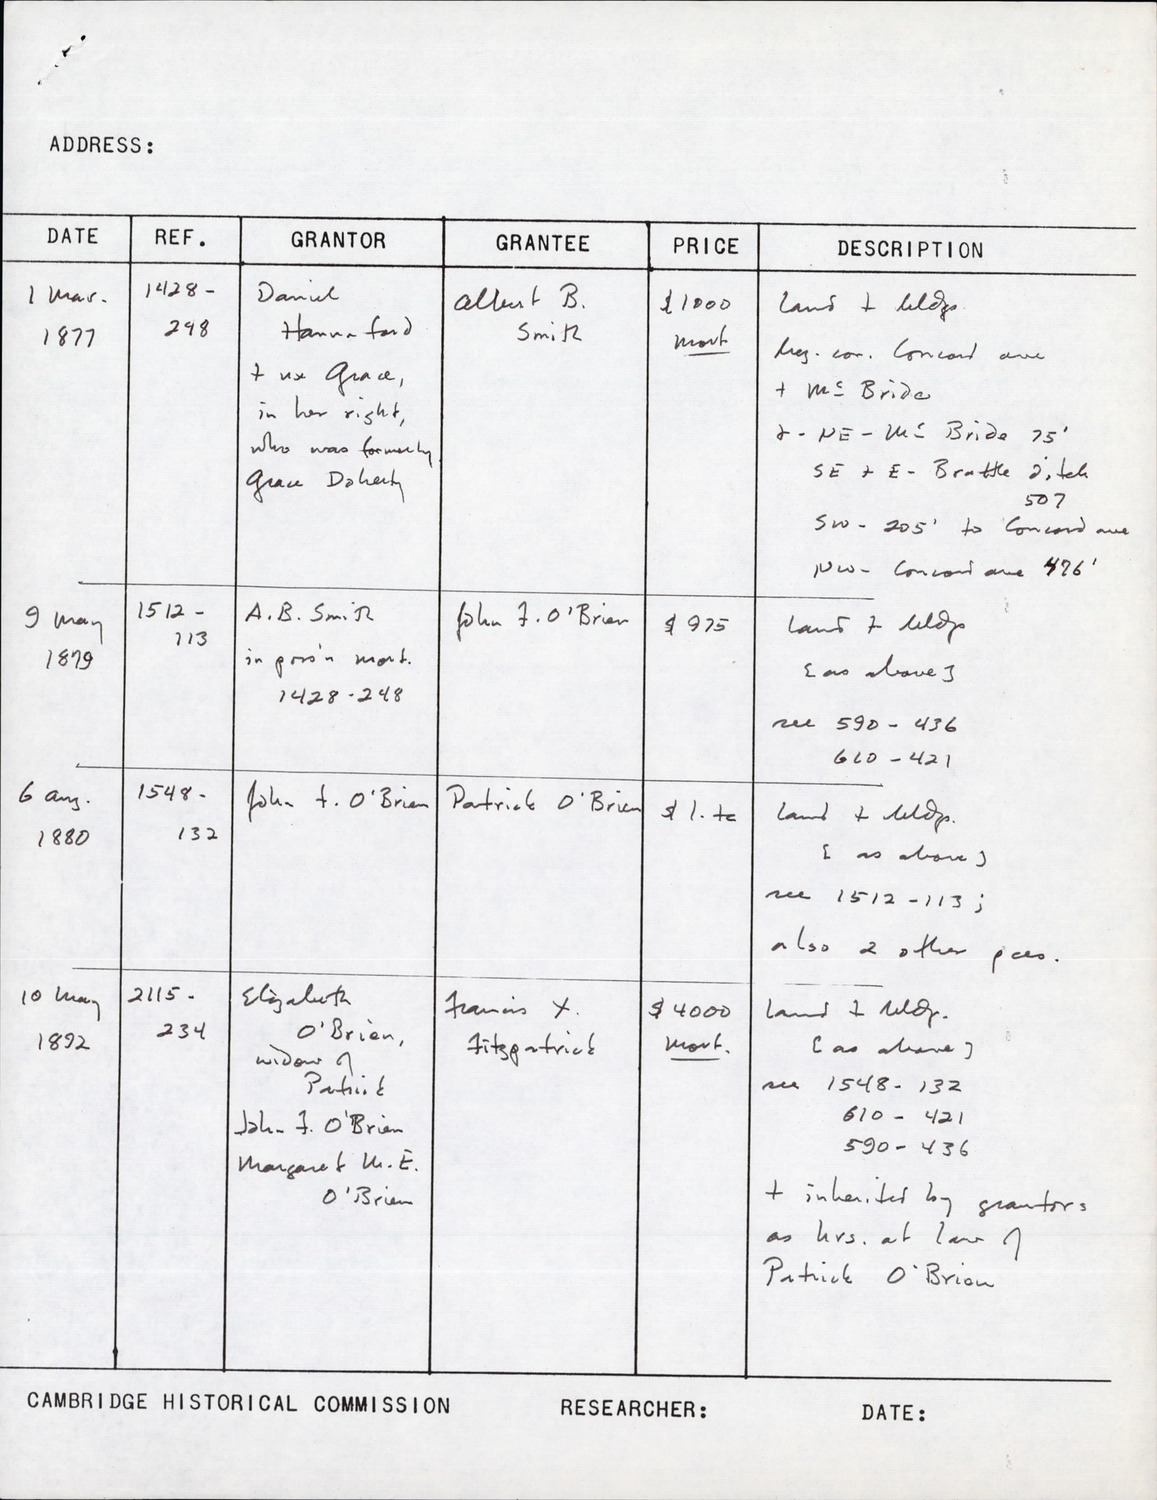 ADDRESS:
DATE REF. GRANTOR GRANTEE PRICE DESCRIPTION
1 Mar.
1877
1428-
248
Daniel
Hannaford
+ ux Grace,
in her right,
who was formerly
Grace Doherty
Albert B.
Smith
$1000
mort
Land + bldgs.
beg. cor. Concord Ave
+ McBride
+ - NE - McBride 75'
SE + E - Brattle ditch
507
SW - 205' to Concord Ave
NW - Concord Ave 476'
9 May
1879
1512-
113
A.B. Smith
in poss'n mort.
1428-248
John F. O'Brien
$ 975
Land + bldgs
[as above]
see 590-436
610-421
6 Aug.
1880
1548-
132
John F. O'Brien
Patrick O'Brien
$1. tc
Land + bldgs.
[as above]
see 1512-113;
also 2 other pces.
10 May
1892
2115-
234
Elizabeth
O'Brien,
widow of
Patrick
John F. O'Brien
Margaret M.E.
O'Brien
Francis X.
Fitzpatrick
$4000
mort.
Land + bldg.
[as above]
see 1548-132
610-421
590-436
+ inherited by grantors
as hrs. at law of
Patrick O'Brien
CAMBRIDGE HISTORICAL COMMISSION RESEARCHER: DATE: